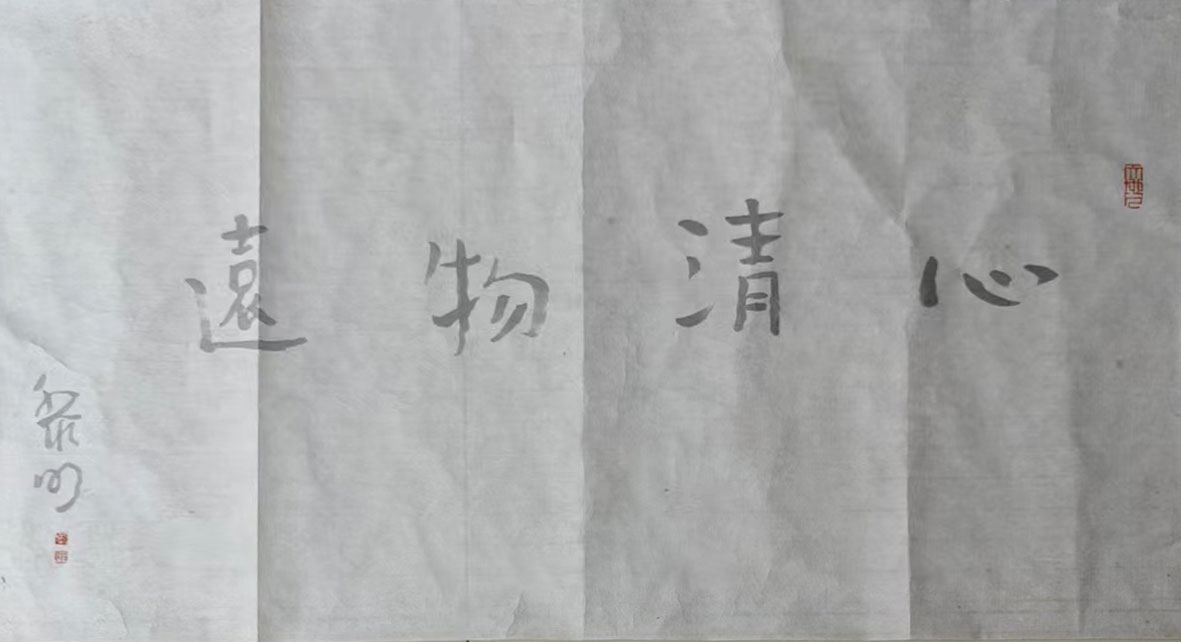 心清物遠
黎明